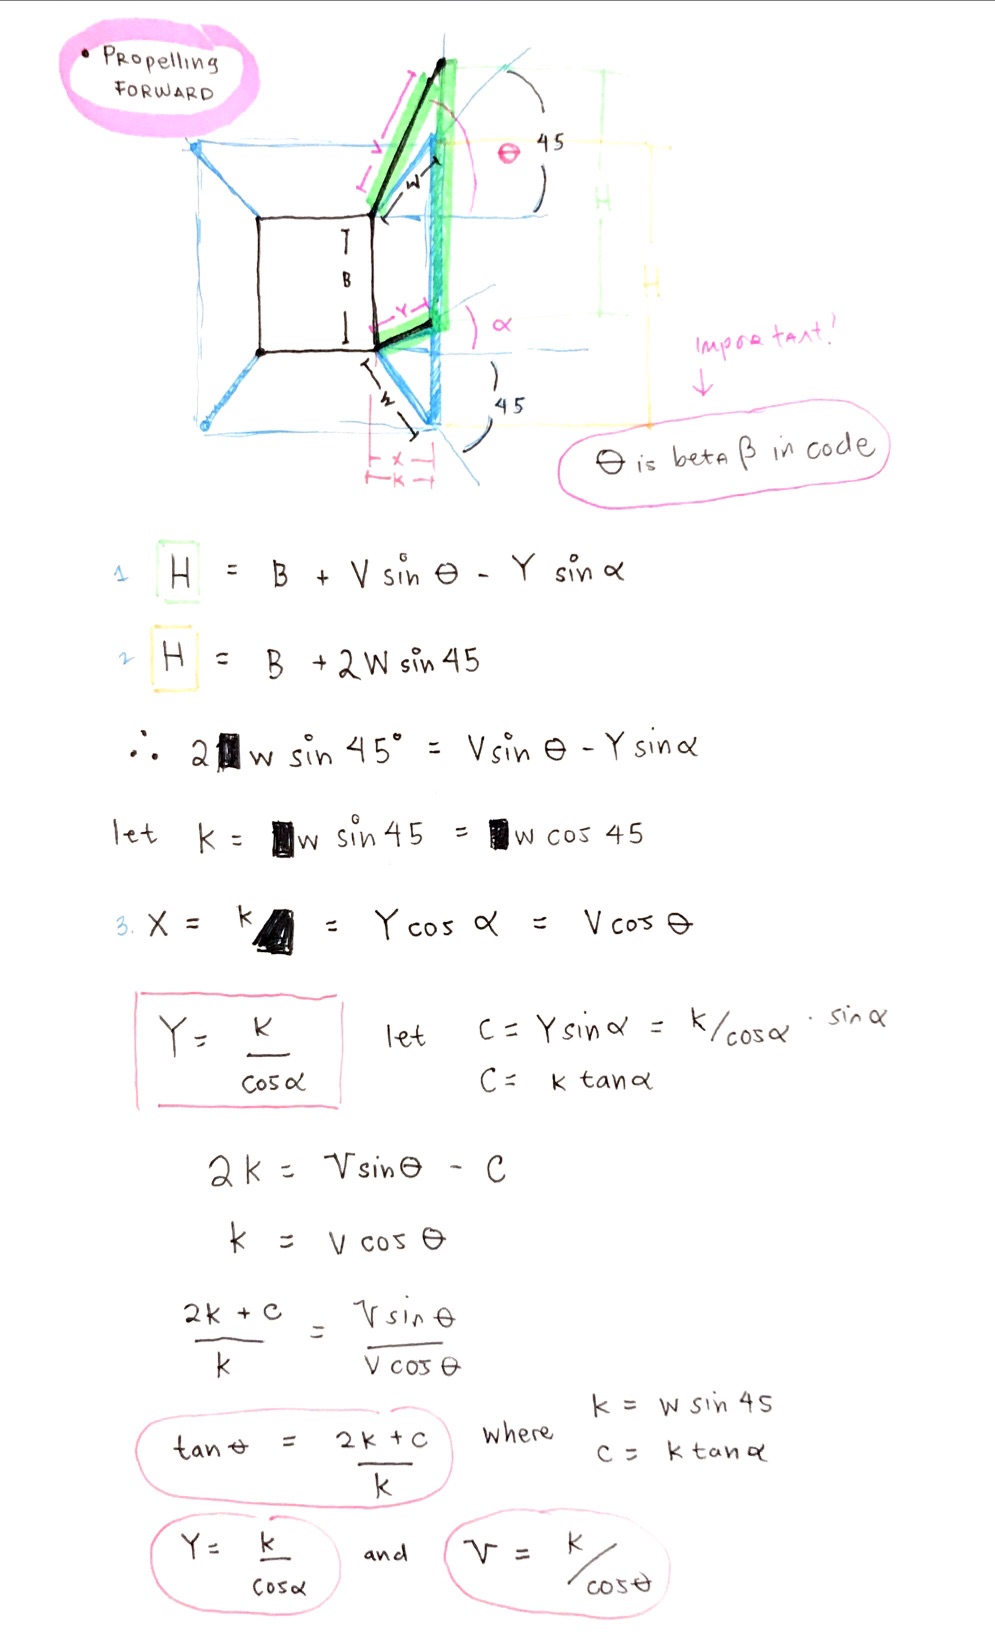 • Propelling
FORWARD
V
W
θ
45
H
T
B
Y
α
H
Important!
W
45
X
K
θ is beta β in code
1 H = B + V sin θ - Y sin α
2 H = B + 2W sin 45
∴ 2 w sin 45° = V sin θ - Y sin α
let k = w sin 45 = w cos 45
3. X = k = Y cos α = V cos θ
Y = K / cos α let C = Y sin α = k/cos α · sin α
C = k tan α
2k = V sin θ - C
k = V cos θ
2k + c / k = V sin θ / V cos θ
tan θ = 2k + c / k where k = w sin 45
c = k tan α
Y = k / cos α and V = k / cos θ